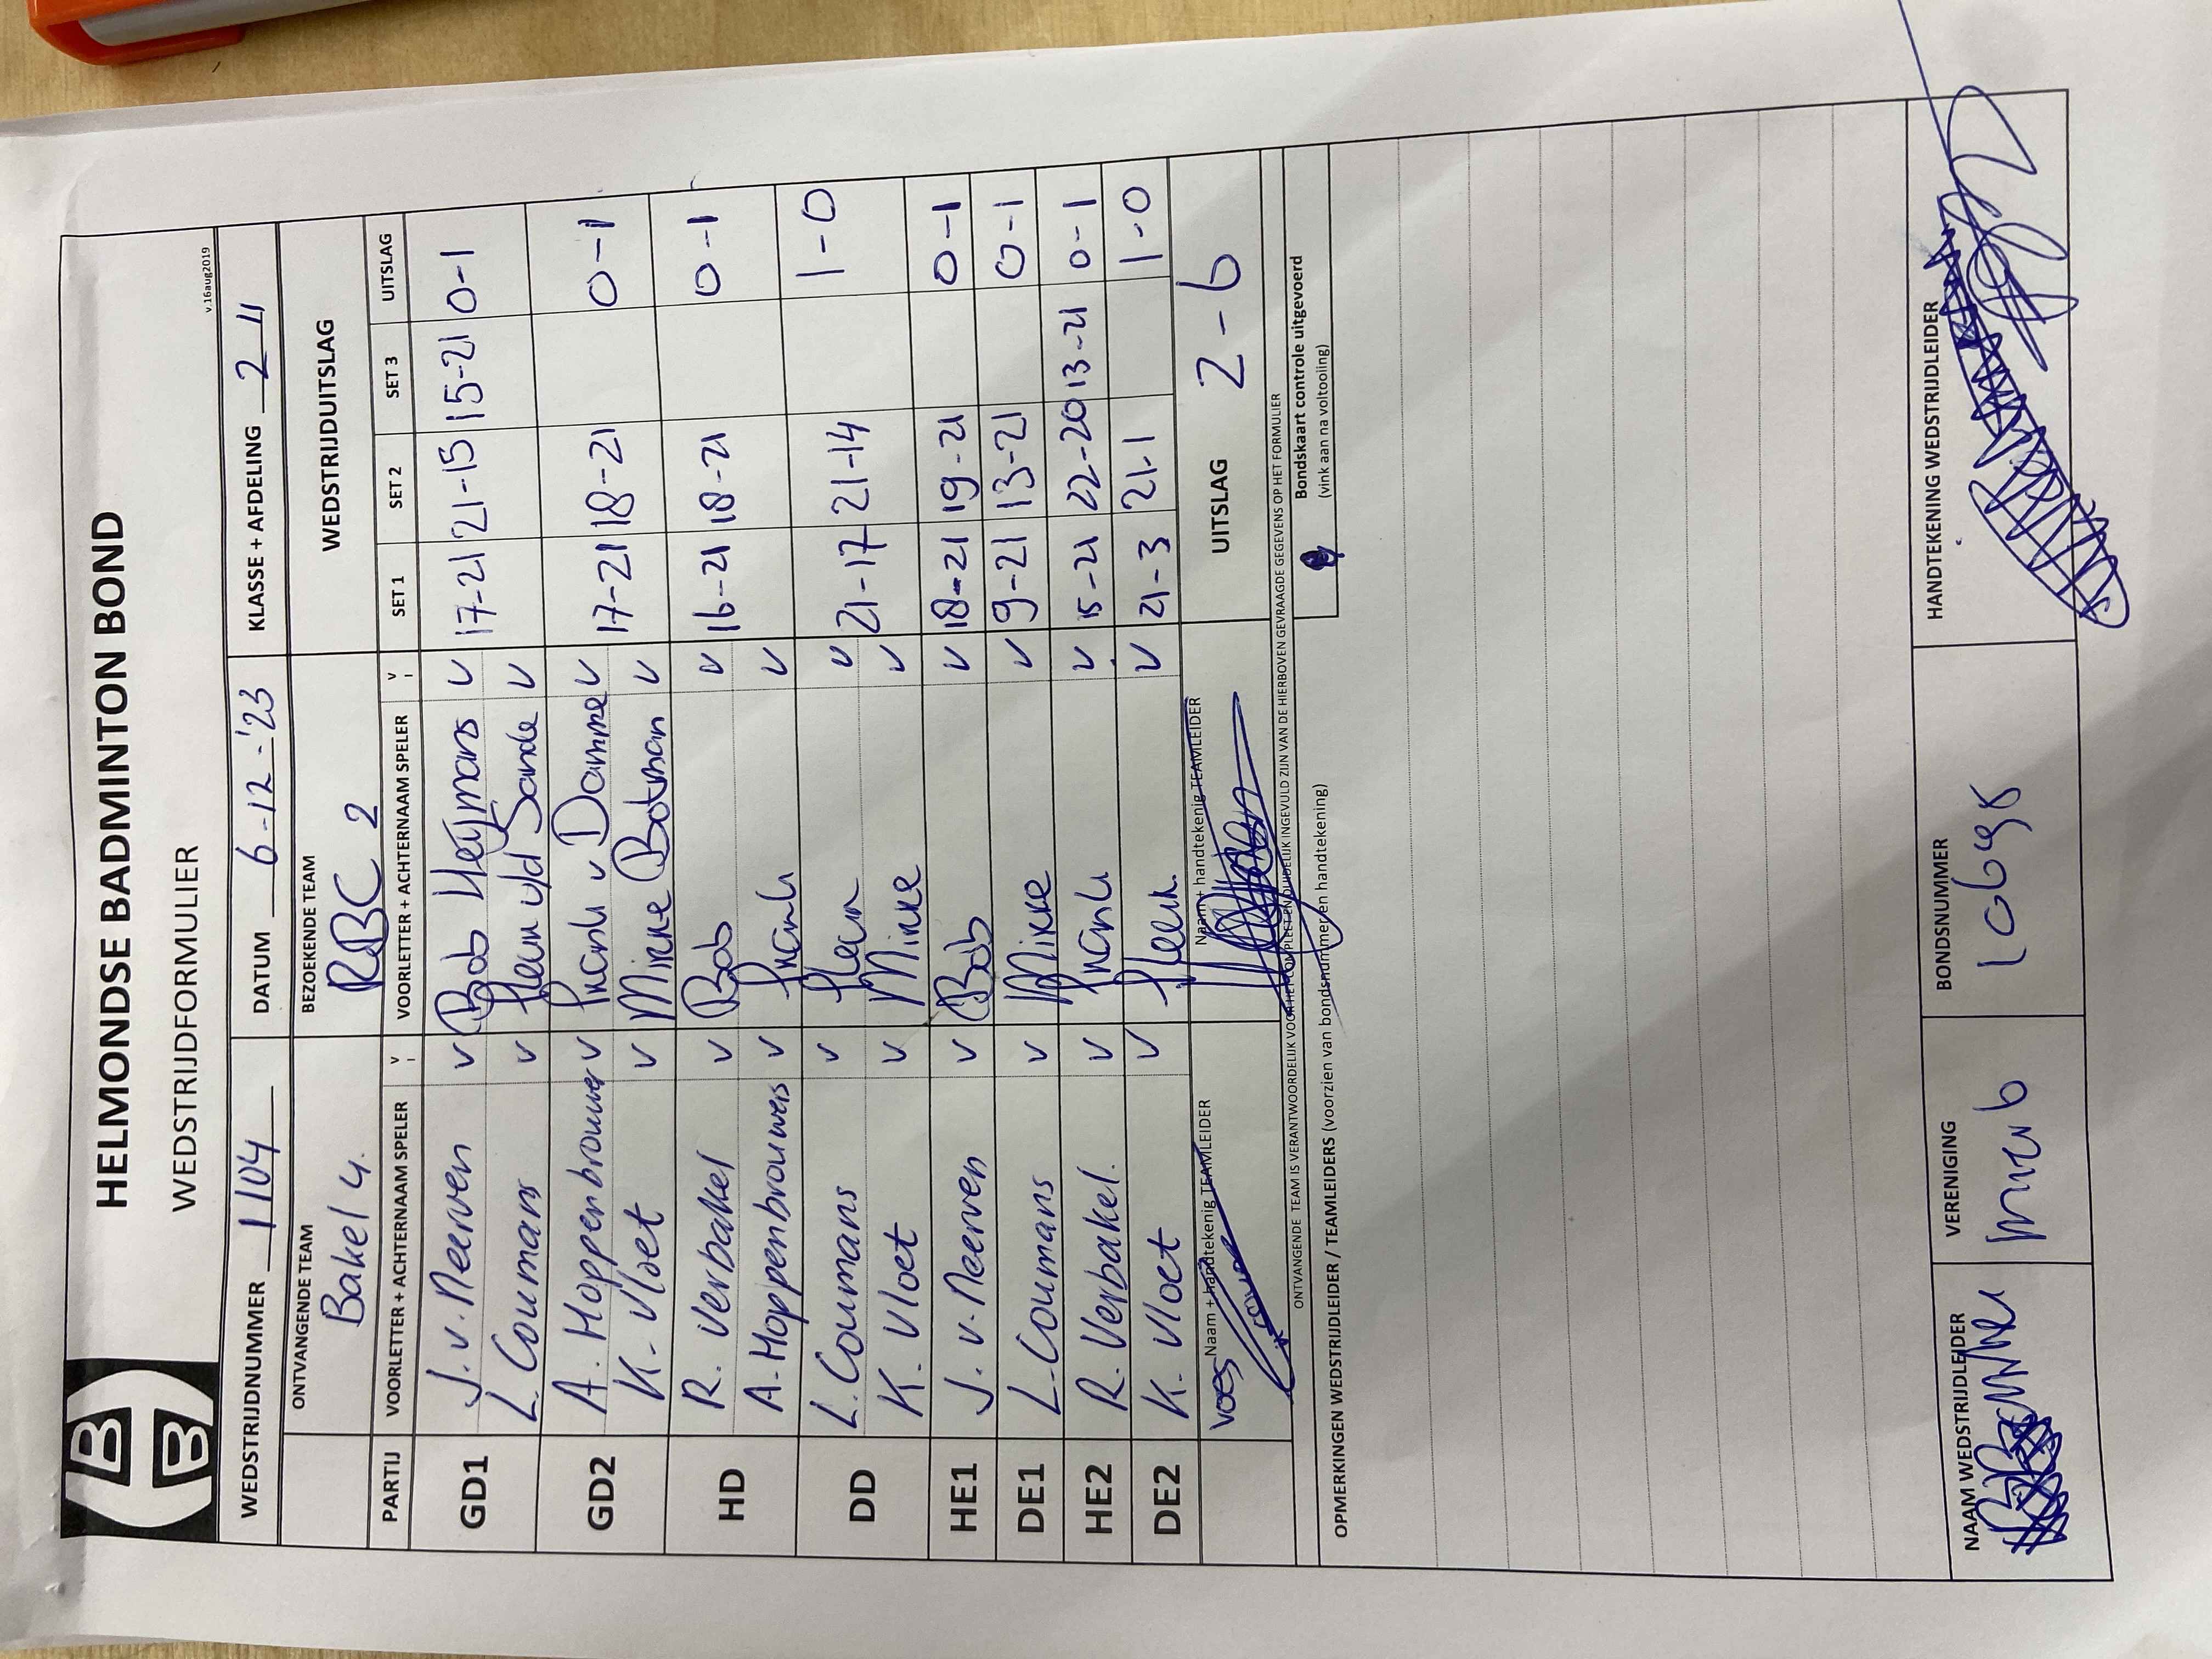 HELMONDSE BADMINTON BOND
WEDSTRIJDFORMULIER
v.16aug2019
WEDSTRIJDNUMMER 1104 DATUM 6-12-'23 KLASSE + AFDELING 2
ONTVANGENDE TEAM BEZOEKENDE TEAM WEDSTRIJDUITSLAG
Bakel 4. RBC 2
PARTIJ VOORLETTER + ACHTERNAAM SPELER V VOORLETTER + ACHTERNAAM SPELER V SET 1 SET 2 SET 3 UITSLAG
GD1 J. v. Neerven v Bob Heijmans v 17-21 21-15 15-21 0-1
L. Coumans v v/d Sande v
GD2 A. Hoppenbrouwer v Frank v Damme v 17-21 18-21 0-1
K. Vloet v Minke Botman v
HD R. Verbakel v Bob v 16-21 18-21 0-1
A. Hoppenbrouwers v Frank v
DD L. Coumans v v 21-17 21-14 1-0
K. Vloet v Minke v
HE1 J. v. Neerven v Bob v 18-21 19-21 0-1
DE1 L. Coumans v Minke v 9-21 13-21 0-1
HE2 R. Verbakel. v Frank v 15-21 22-20 13-21 0-1
DE2 K. Vloet v v 21-3 21-1 1-0
Naam + handtekenig TEAMLEIDER Naam + handtekenig TEAMLEIDER UITSLAG 2-6
ONTVANGENDE TEAM IS VERANTWOORDELIJK VOOR HET COMPLEET EN DUIDELIJK INGEVULD ZIJN VAN DE HIERBOVEN GEVRAAGDE GEGEVENS OP HET FORMULIER
Bondskaart controle uitgevoerd
(vink aan na voltooling)
OPMERKINGEN WEDSTRIJDLEIDER / TEAMLEIDERS (voorzien van bondsnummer en handtekening)
NAAM WEDSTRIJDLEIDER VERENIGING BONDSNUMMER HANDTEKENING WEDSTRIJDLEIDER
10698